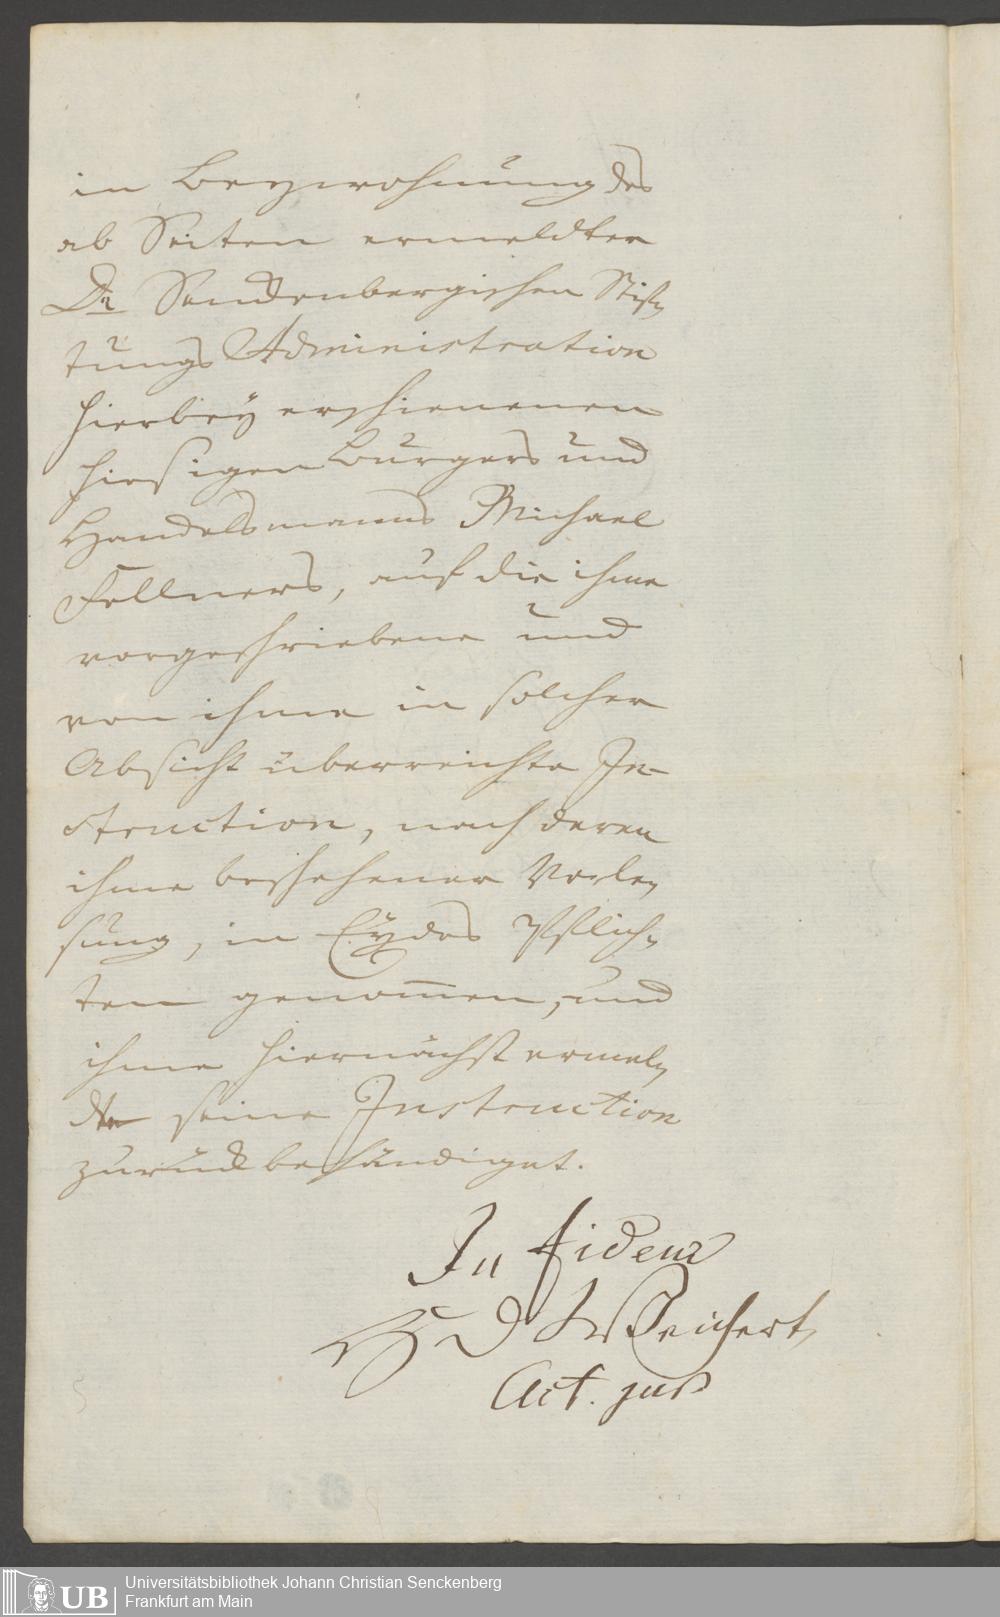 in Beywohnung des
ab Seiten ermeldter
Dr Senckenbergischen Stif-
tungs Administration
hierbey erschienenen
hiesigen Burgers und
Handelsmanns Michael
Fellners, auf die ihme
vorgeschriebene und
von ihme in solcher
Absicht überreichte In-
struction, nach deren
ihme beschehener Vorle-
sung, in Eydes Pflich-
ten genommen, und
ihme hiernächst ermel-
dte seine Instruction
zurück behändiget.
In fidem
Reichert
Act. jur
UB
Universitätsbibliothek Johann Christian Senckenberg
Frankfurt am Main